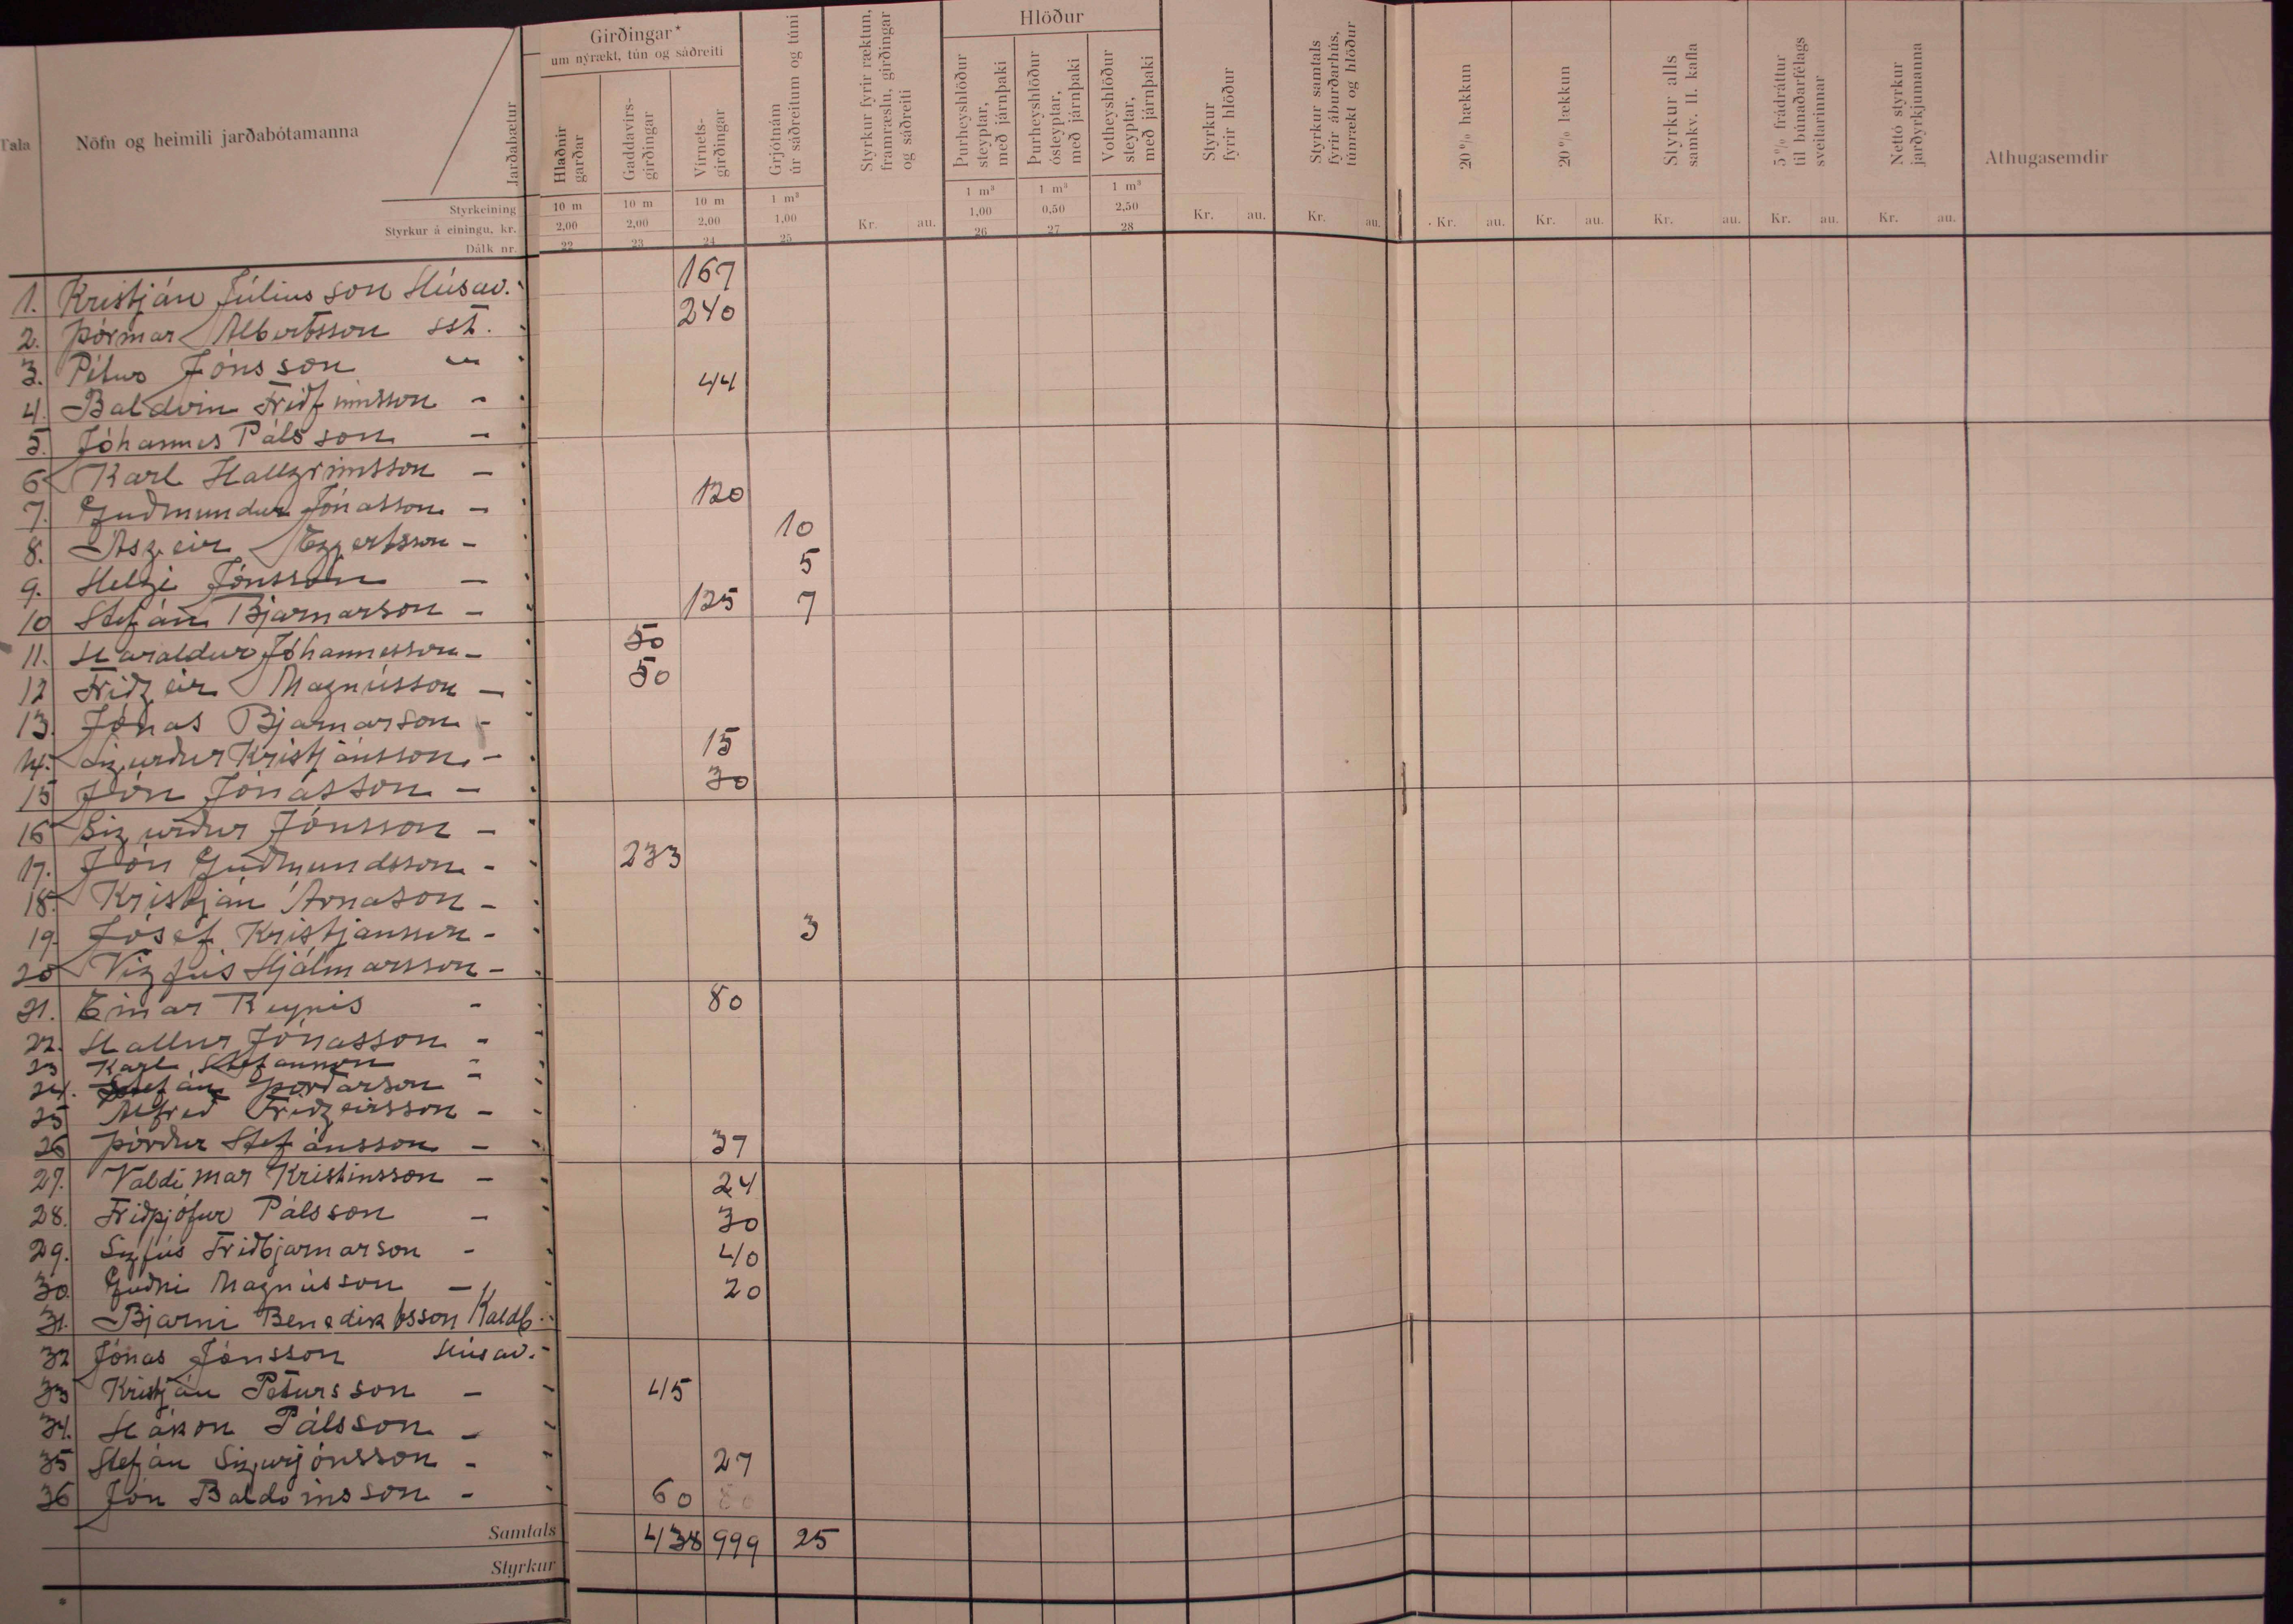 Tala
Nöfn og heimili jarðabótamanna
Jarðabætur
Styrkeining
Styrkur á einingu, kr.
Dálk nr.
Girðingar*
um nýrækt, tún og sáðreiti
Hlaðnir garðar 10 m 2,00 22
Gaddavírs-girðingar 10 m 2,00 23
Virnets-girðingar 10 m 2,00 24
Grjótnám úr sáðreitum og túni 1 m³ 1,00 25
Styrkur fyrir ræktun, framræslu, girðingar og sáðreiti Kr. au.
Hlöður
Þurheyshlöður steyptar, með járnþaki 1 m³ 1,00 26
Þurheyshlöður ósteyptar, með járnþaki 1 m³ 0,50 27
Votheyshlöður steyptar, með járnþaki 1 m³ 2,50 28
Styrkur fyrir hlöður Kr. au.
Styrkur samtals fyrir áburðarhús, túnrækt og hlöður Kr. au.
20 % hækkun Kr. au.
20 % lækkun Kr. au.
Styrkur alls samkv. II. kafla Kr. au.
5 % frádráttur til búnaðarfélags sveitarinnar Kr. au.
Nettó styrkur jarðyrkjumanna Kr. au.
Athugasemdir
1. Kristján Júlíusson Húsav. 167
2. Þórmar Albertsson sst. 240
3. Pétur Jónsson "
4. Baldvin Friðfinnsson - 44
5. Jóhannes Pálsson -
6 Karl Hallgrímsson -
7. Guðmundur Jónasson - 120
8. Ásgeir Eggertsson - 10
9. Helgi Jónsson - 5
10 Stefán Bjarnarson - 125 7
11. Haraldur Jóhannesson - 50
12 Friðgeir Magnússon - 50
13. Jónas Bjarnarson -
14. Sigurður Kristjánsson - 15
15 Jón Jónasson - 30
16 Sigurður Jónsson -
17. Jón Guðmundsson - 233
18. Kristján Árnason -
19. Jósef Kristjánsson - 3
20 Vigfús Hjálmarsson -
21. Einar Reynis - 80
22. Hallur Jónasson -
23 Karl Stefánsson -
24. Stefán Þórðarson -
25 Alfreð Friðgeirsson -
26 Þórður Stefánsson - 37
27. Valdimar Kristinsson - 24
28. Friðþjófur Pálsson - 30
29. Sigfús Friðbjarnarson - 40
30. Guðni Magnússon - 20
31. Bjarni Benediktsson Kaldb.
32 Jónas Jónsson Húsav.
33 Kristján Pétursson - 45
34. Hákon Pálsson -
35 Stefán Sigurjónsson - 27
36 Jón Baldvinsson - 60 80
Samtals 438 999 25
Styrkur